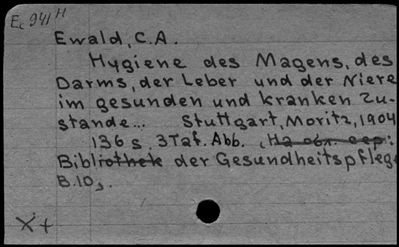 Ec 941 H
Ewald, C.A.
Hygiene des Magens, des
Darms, der Leber und der Niere
im gesunden und kranken Zu-
stande... Stuttgart, Moritz, 1904
136 s. 3 Taf. Abb. (На обл. сер:
Bibliothek der Gesundheitspfleg
B. 10
X+